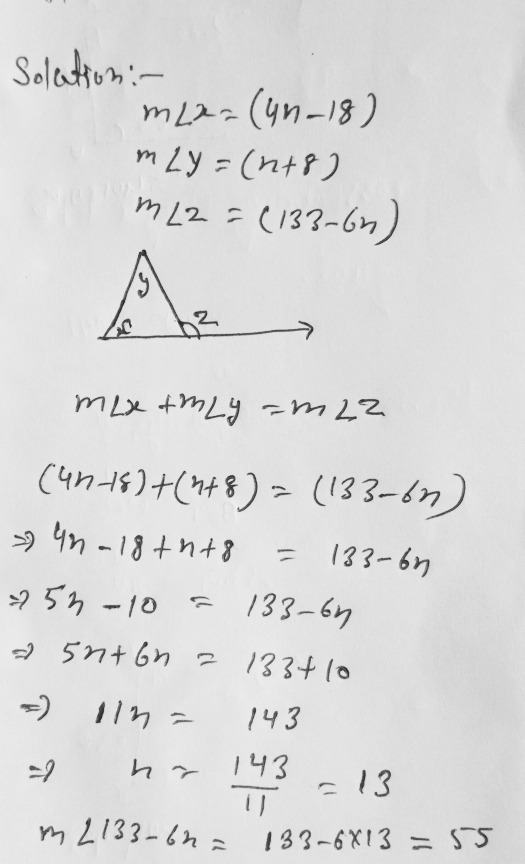 Solution:-
m∠x = (4n-18)
m∠y = (n+8)
m∠z = (133-6n)
y
x z
m∠x + m∠y = m∠z
(4n-18)+(n+8) = (133-6n)
⇒ 4n - 18 + n + 8 = 133-6n
⇒ 5n - 10 = 133-6n
⇒ 5n + 6n = 133 + 10
⇒ 11n = 143
⇒ n = 143/11 = 13
m∠133-6n = 133-6×13 = 55